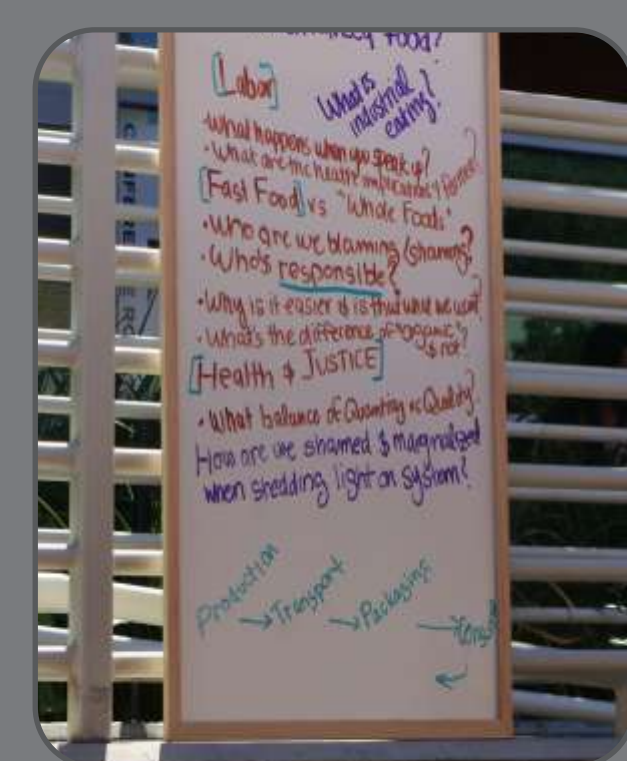 Food?
[Labor]
What is
industrial
eating?
• What happens when you speak up?
• What are the health implications
[Fast Food] vs "Whole Foods"
• Who are we blaming/shaming?
• Who's responsible?
• Why is it easier & is that what we want?
• What's the difference of "organic"?
& not?
[Health & JUSTICE]
• What balance of Quantity vs Quality?
How are we shamed & marginalized
when shedding light on system?
Production
→ Transport
→ Packaging
→
←